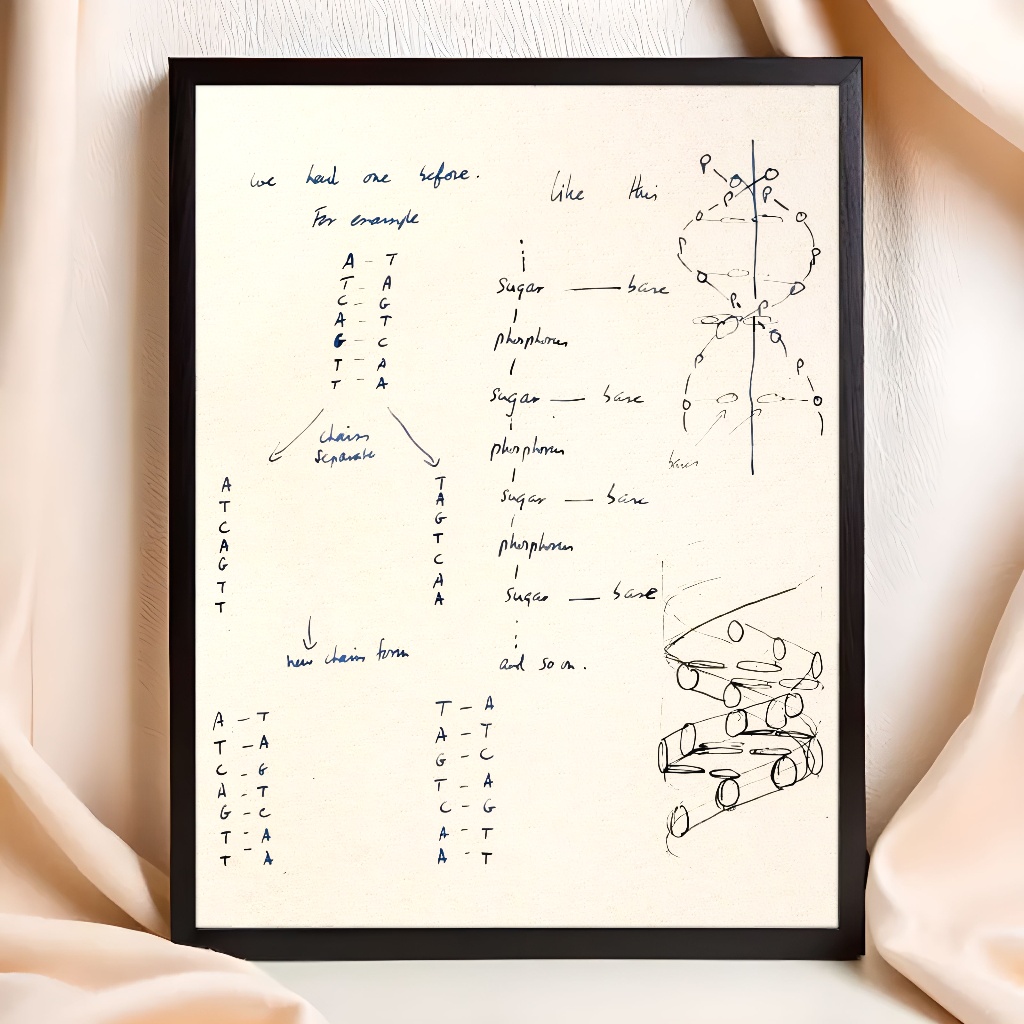 we had one before.
For example
A - T
T - A
C - G
A - T
G - C
T - A
T - A
chains
separate
A
T
C
A
G
T
T
T
A
G
T
C
A
A
new chains form
A - T
T - A
C - G
A - T
G - C
T - A
T - A
T - A
A - T
G - C
T - A
C - G
A - T
A - T
like this
sugar — base
phosphorus
sugar — base
phosphorus
sugar — base
phosphorus
sugar — base
and so on.
P
P
P
P
P
P
P
P
P
bases